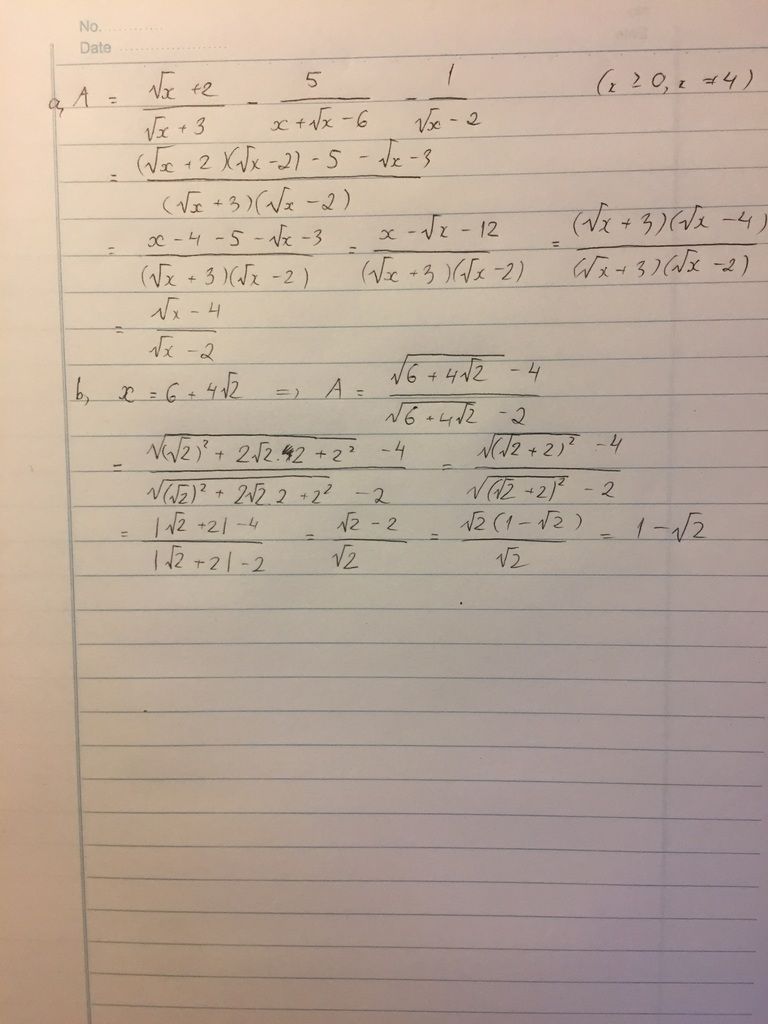 No. ............
Date ........................
a, A = (√x + 2)/(√x + 3) - 5/(x + √x - 6) - 1/(√x - 2) (x ≥ 0, x ≠ 4)
= ((√x + 2)(√x - 2) - 5 - √x - 3)/((√x + 3)(√x - 2))
= (x - 4 - 5 - √x - 3)/((√x + 3)(√x - 2)) = (x - √x - 12)/((√x + 3)(√x - 2)) = ((√x + 3)(√x - 4))/((√x + 3)(√x - 2))
= (√x - 4)/(√x - 2)
b, x = 6 + 4√2 => A = (√(6 + 4√2) - 4)/(√(6 + 4√2) - 2)
= (√((√2)² + 2√2.2 + 2²) - 4)/(√((√2)² + 2√2.2 + 2²) - 2) = (√((√2 + 2)²) - 4)/(√((√2 + 2)²) - 2)
= (|√2 + 2| - 4)/(|√2 + 2| - 2) = (√2 - 2)/√2 = (√2(1 - √2))/√2 = 1 - √2